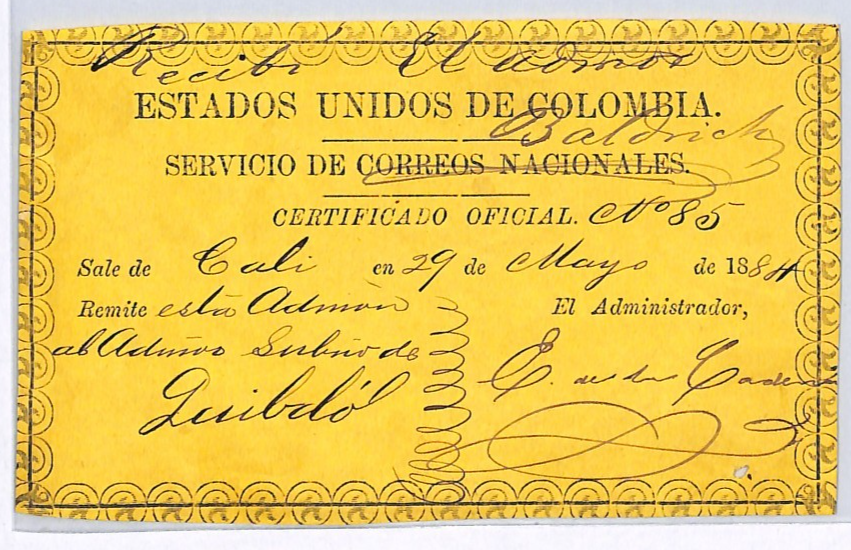 Recibí El admor
ESTADOS UNIDOS DE COLOMBIA.
Baldrich
SERVICIO DE CORREOS NACIONALES.
CERTIFICADO OFICIAL. No 85
Sale de Cali en 29 de Mayo de 1884
Remite esta Admon El Administrador,
al Admor de
E. de la Cadena
Quibdó